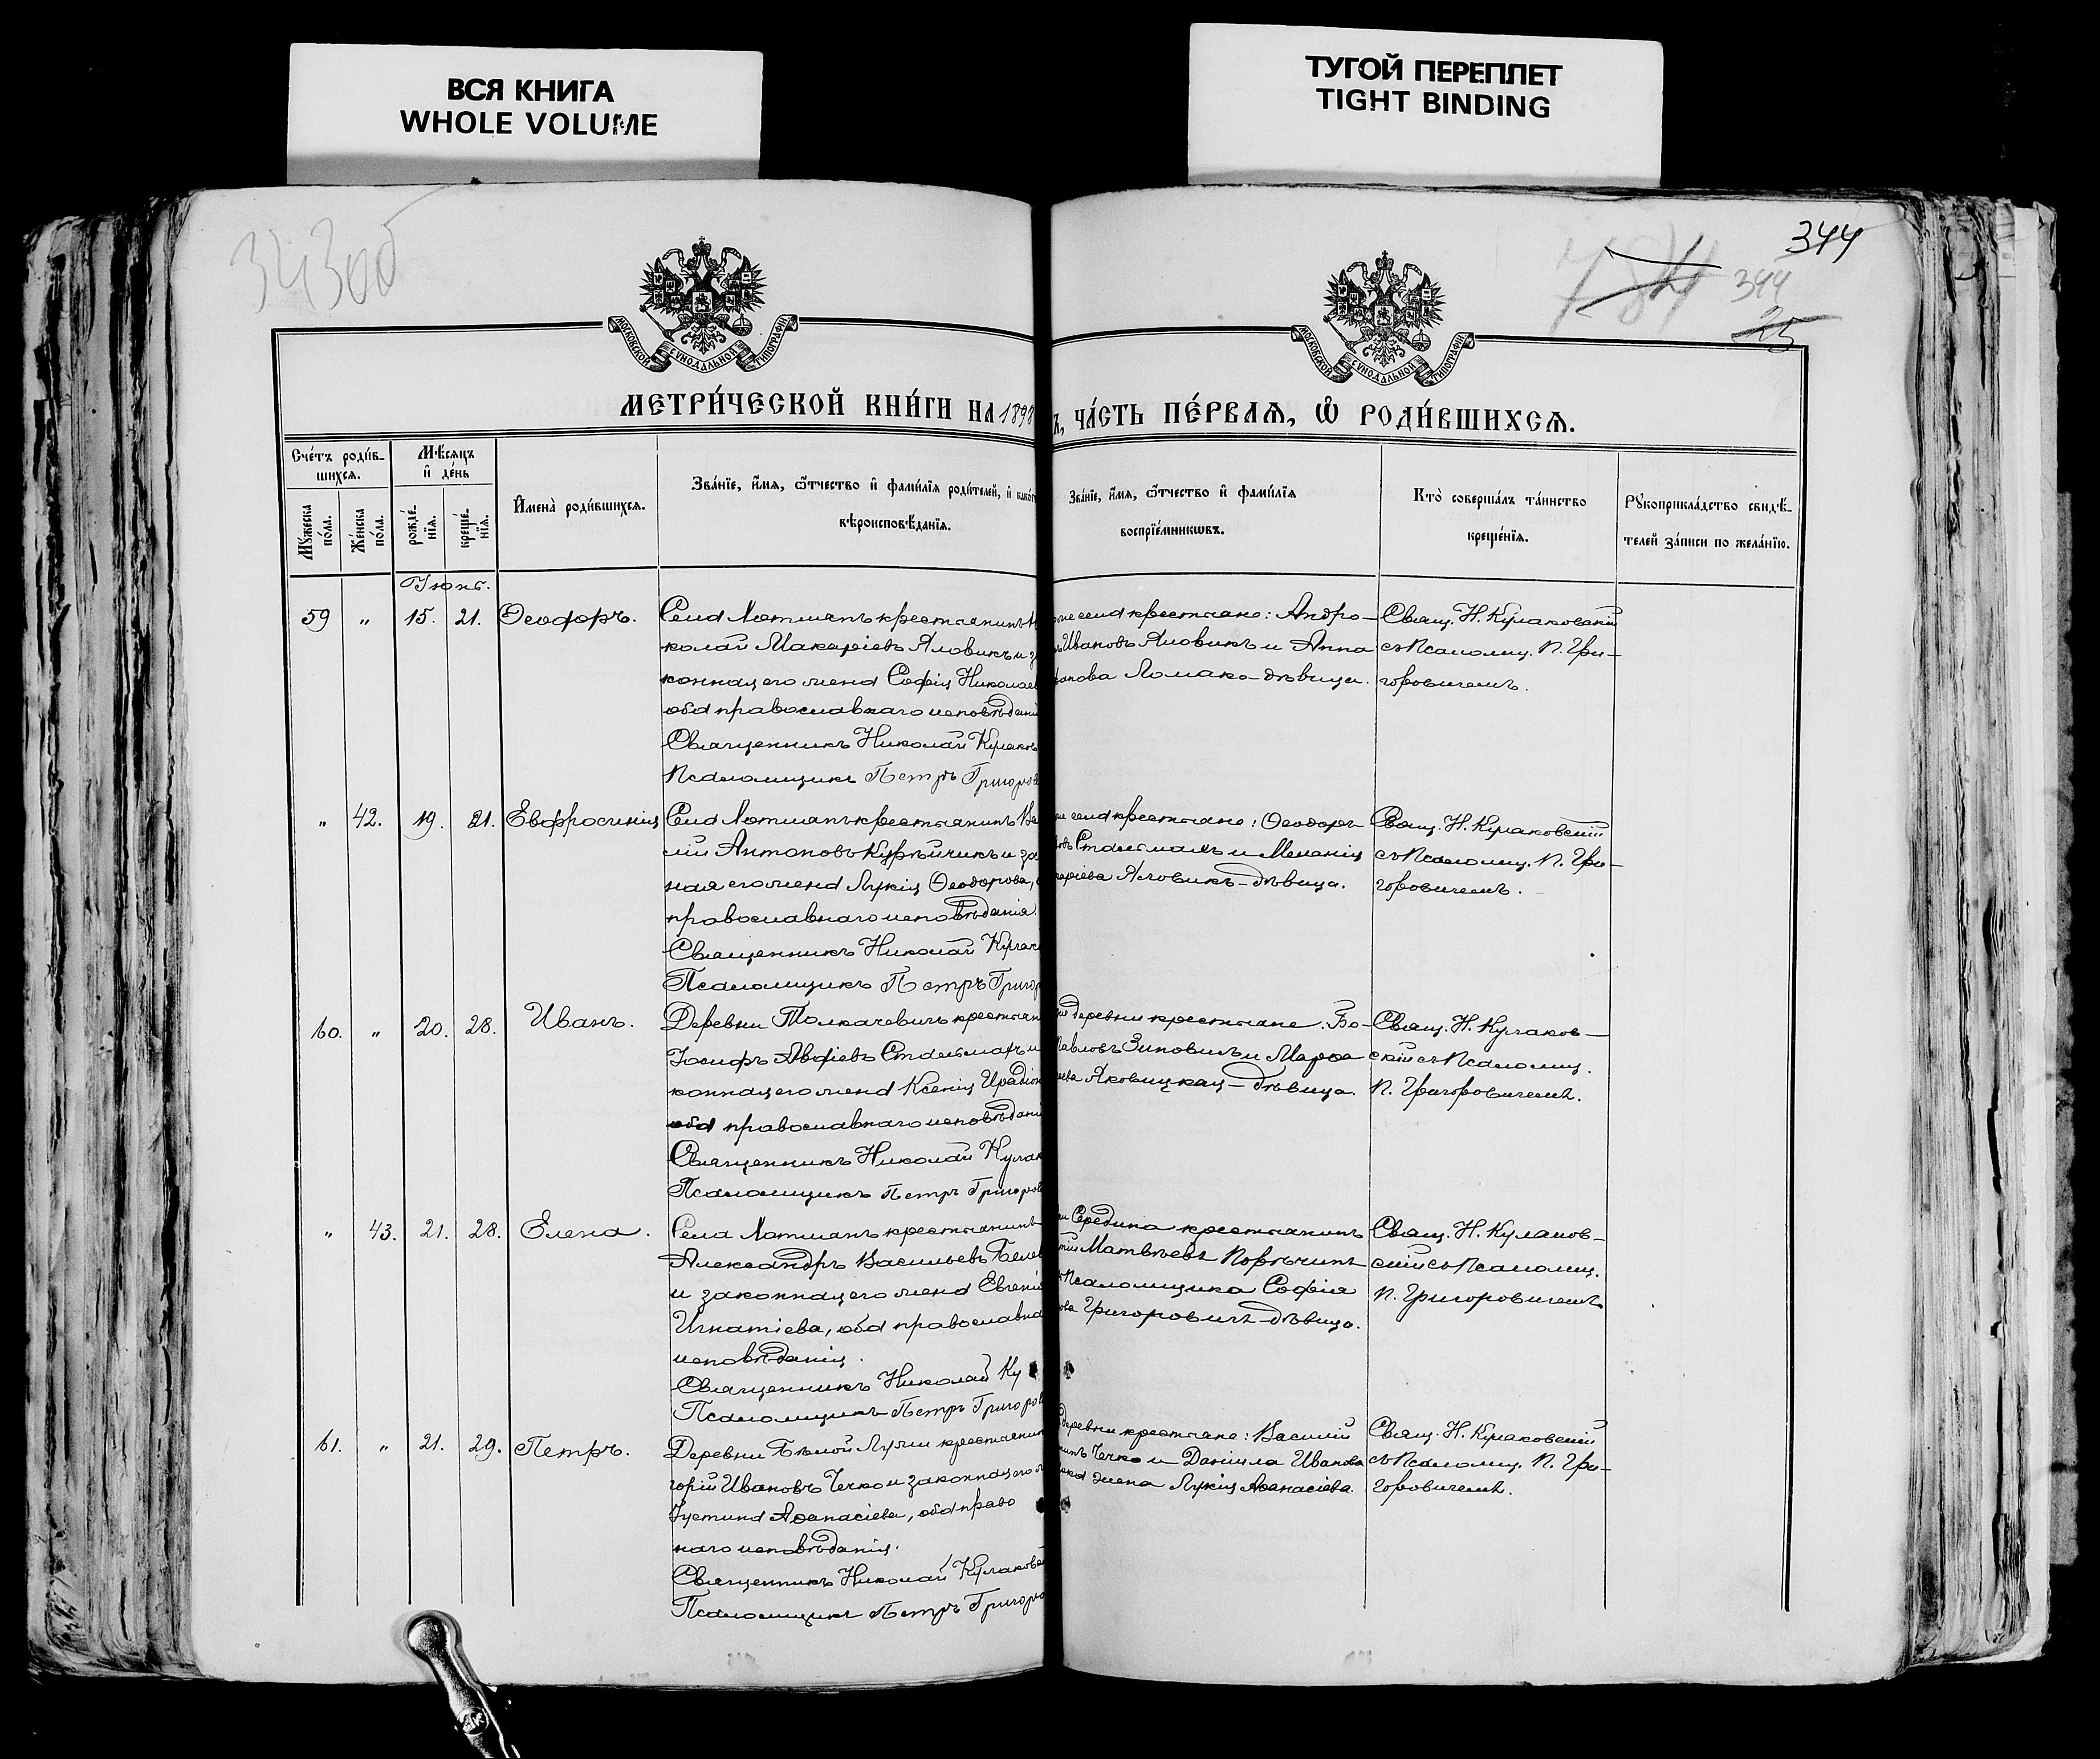 ВСЯ КНИГА
WHOLE VOLUME
ТУГОЙ ПЕРЕПЛЕТ
TIGHT BINDING
343об
344
344
25
МОСКОВСКОЙ СУНОДАЛЬНОЙ ТИПОГРАФІИ
МОСКОВСКОЙ СУНОДАЛЬНОЙ ТИПОГРАФІИ
МЕТРИ́ЧЕСКОЙ КНИ́ГИ НА 1898
Ъ, ЧА́СТЬ ПЕ́РВАѦ, Ѡ РОДИ́ВШИХСѦ.
Сче́тъ роди́в-
шихсѧ.
Мѣ́сѧцъ
и҆ де́нь
Мꙋ́жеска по́ла.
Же́нска по́ла.
рожде́нїѧ.
креще́нїѧ.
И҆мена̀ роди́вшихсѧ.
Зва́нїе, и҆́мѧ, ѻ҆́тчество и҆ фами́лїѧ роди́телей, и҆ како́г
вѣроисповѣ́данїѧ.
Зва́нїе, и҆́мѧ, ѻ҆́тчество и҆ фами́лїѧ
воспрїе́мникѡвъ.
Кто̀ соверша́лъ та́инство
креще́нїѧ.
Рꙋкоприкла́дство свидѣ́-
телей за́писи по жела́нїю.
Іюнь.
59 " 15. 21. Ѳеодоръ.
Села Лотманъ крестьянинъ Н
колай Макаріевъ Яловикъ и за
конная его жена Софія Николаев
оба православнаго исповѣдані
Священникъ Николай Кулаков
Псаломщикъ Петръ Григоров
села крестьяне: Андро-
Ивановъ Яловикъ и Анна
Ломако - дѣвица.
Свящ. Н. Кулаковскій
съ Псаломщ. П. Гри-
горовичемъ.
" 42. 19. 21. Евфросинія
Села Лотманъ крестьянинъ Ва
лій Антоновъ Курѣйчикъ и за
ная его жена Лукія Ѳеодорова,
православнаго исповѣданія.
Священникъ Николай Кулак
Псаломщикъ Петръ Григор
села крестьяне: Ѳеодоръ
Стальмахъ и Меланія
Яловикъ - дѣвица.
Свящ. Н. Кулаковскій
съ Псаломщ. П. Гри-
горовичемъ.
60. " 20. 28. Иванъ.
Деревни Толкачевичъ крестьян
Іосифъ Авфіевъ Стальмахъ и
конная его жена Ксенія Иродіон
оба православнаго исповѣдані
Священникъ Николай Кулак
Псаломщикъ Петръ Григоров
деревни крестьяне: Бо-
Павловъ Зиновичъ и Марѳа
Яковицкая - дѣвица.
Свящ. Н. Кулаков-
скій съ Псаломщ.
П. Григоровичемъ.
" 43. 21. 28. Елена.
Села Лотманъ крестьянинъ
Александръ Васильевъ
и законная его жена Евгенія
Игнатіева, оба православна
исповѣданія.
Священникъ Николай Ку
Псаломщикъ Петръ Григоров
Середина крестьянинъ
Матвѣевъ
Псаломщика Софія
Григоровичъ - дѣвица.
Свящ. Н. Кулаков-
скій съ Псаломщ.
П. Григоровичемъ
61. " 21. 29. Петръ.
Деревни Бѣлой Лужи крестьянин
горій Ивановъ Чечко и законная его ж
Іустина Аѳанасіева, оба право
наго исповѣданія.
Священникъ Николай Кулаковс
Псаломщикъ Петръ Григоро
деревни крестьяне: Василій
Чечко и Даніила Иванова
жена Лукія Аѳанасіева.
Свящ. Н. Кулаковскій
съ Псаломщ. П. Гри-
горовичемъ.